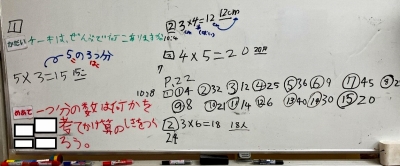 1
かだい ケーキは、ぜんぶで何こありますか
5の3つ分
5×3=15 15こ
めあて 一つ分の数は何かを
考えてかけ算のしきをつく
ろう。
2 3×4=12 12cm
3 4×5=20
P.22
1 ①4 ②32 ③12 ④25 ⑤36 ⑥9 ⑦45
⑨8 ⑩21 ⑪14 ⑫6 ⑬40 ⑭30 ⑮20
2 3×6=18 18人
24